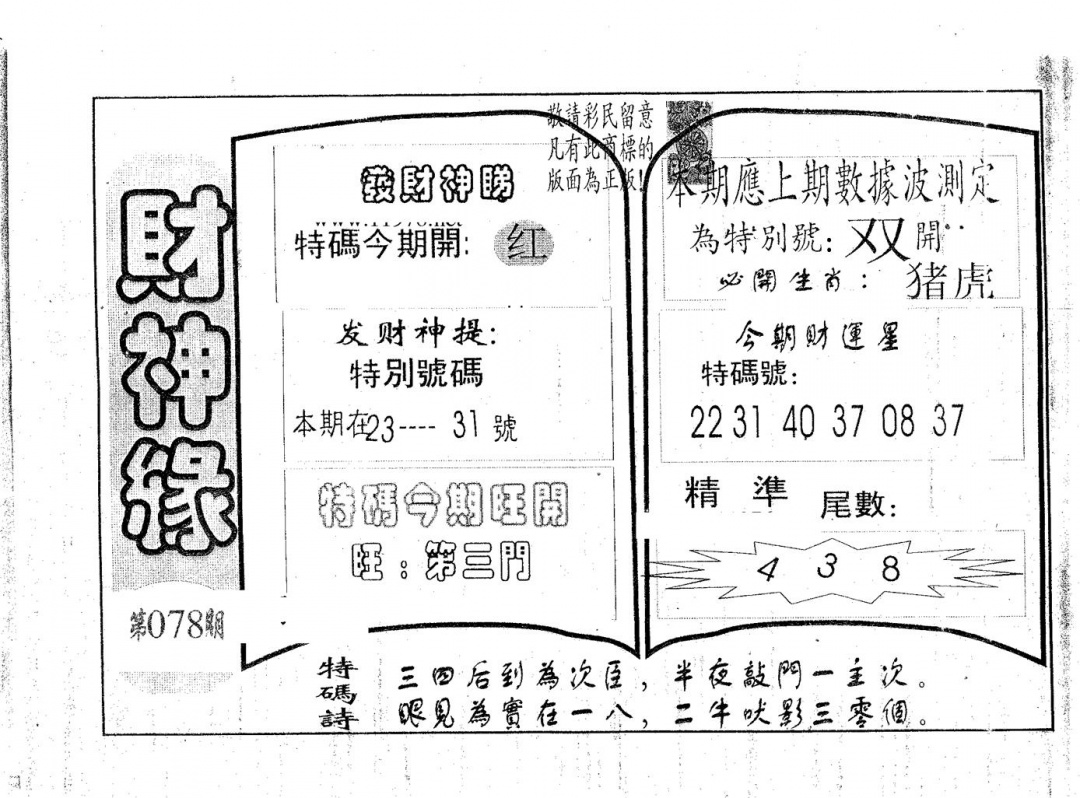 財神緣
第078期
敬請彩民留意
凡有此商標的
版面為正版!
發財神睇
特碼今期開: 红
发财神提:
特別號碼
本期在23----31號
特碼今期旺開
旺:第三門
本期應上期數據波測定
為特別號:双開
必開生肖:猪虎
今期财運星
特碼號:
22 31 40 37 08 37
精準 尾數:
4 3 8
特碼詩
三四后到為次臣,半夜敲門一主次。
眼見為實在一八,二牛吠影三零個。